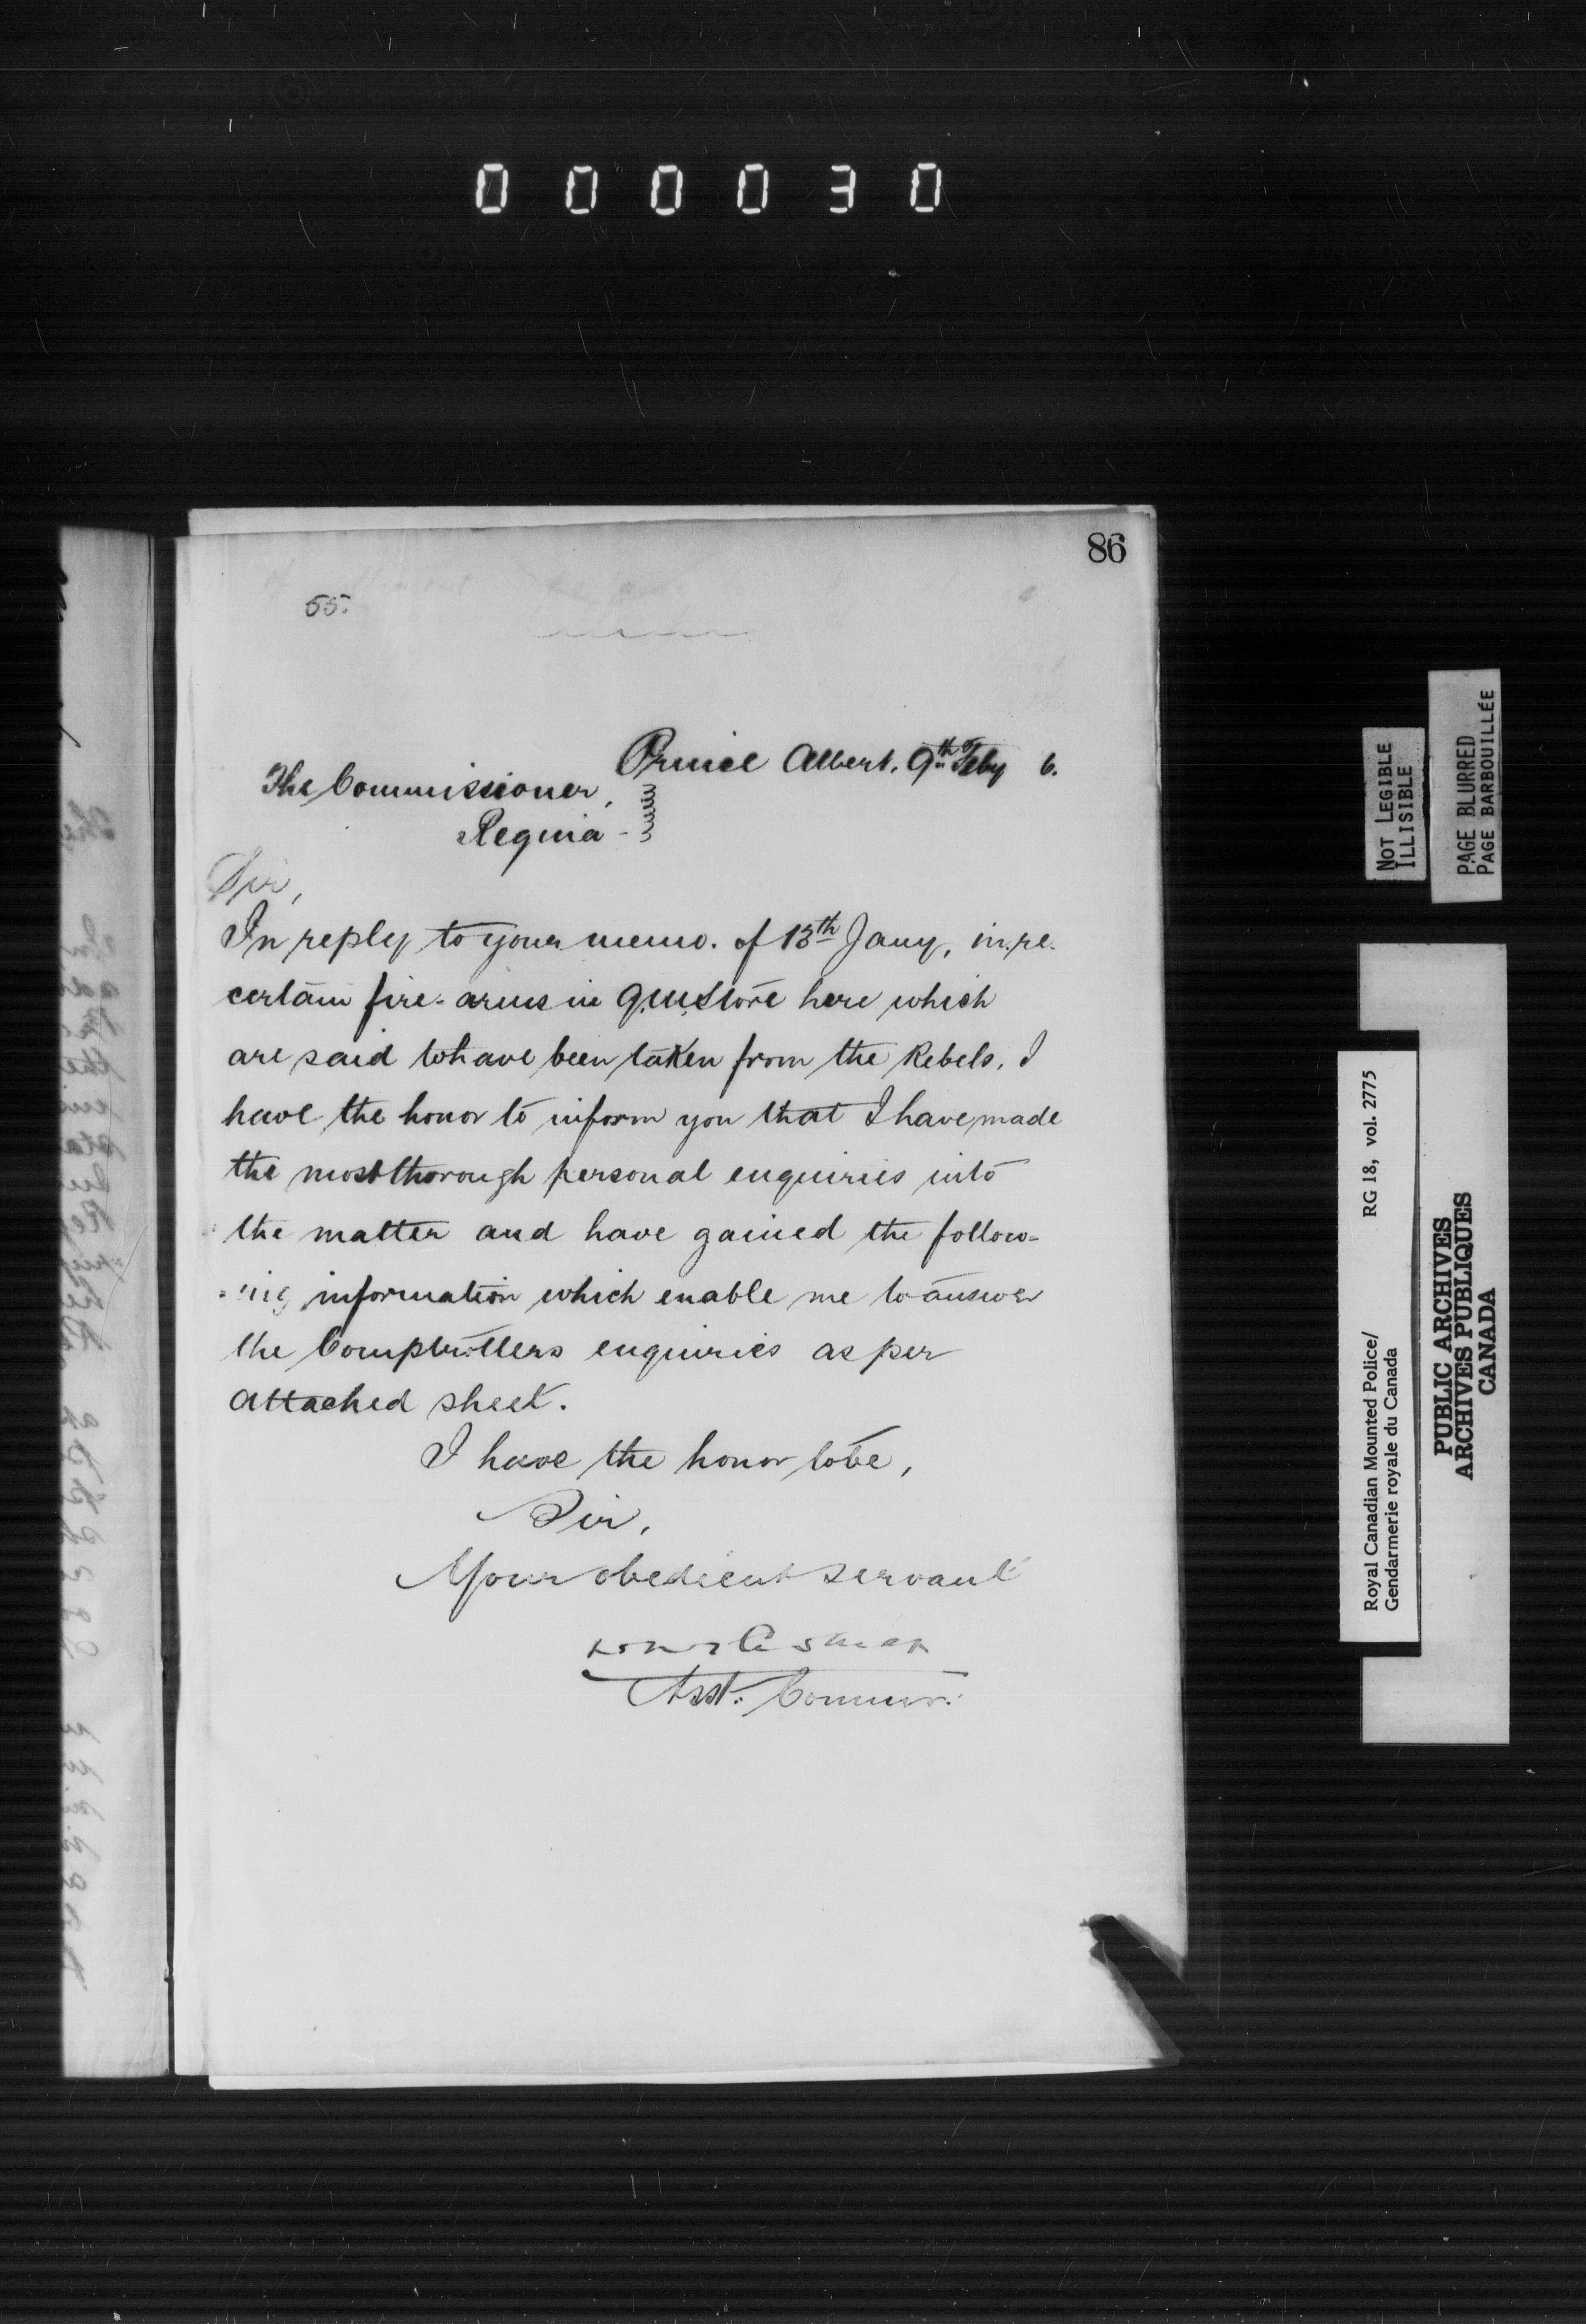 000030
86
55.
Prince Albert, 9th Feby 6.
The Commissioner,
Regina -
Sir,
In reply to your memo. of 13th Jany, in. re.
certain fire-arms in Q.M. Store here which
are said to have been taken from the Rebels, I
have the honor to inform you that I have made
the most thorough personal enquiries into
the matter and have gained the follow-
-ing information which enable me to answer
the Comptrollers enquiries as per
attached sheet.
I have the honor to be,
Sir,
Your obedient servant
Asst. Commr.
NOT LEGIBLE
ILLISIBLE
PAGE BLURRED
PAGE BARBOUILLÉE
Royal Canadian Mounted Police/ RG 18, vol. 2775
Gendarmerie royale du Canada
PUBLIC ARCHIVES
ARCHIVES PUBLIQUES
CANADA